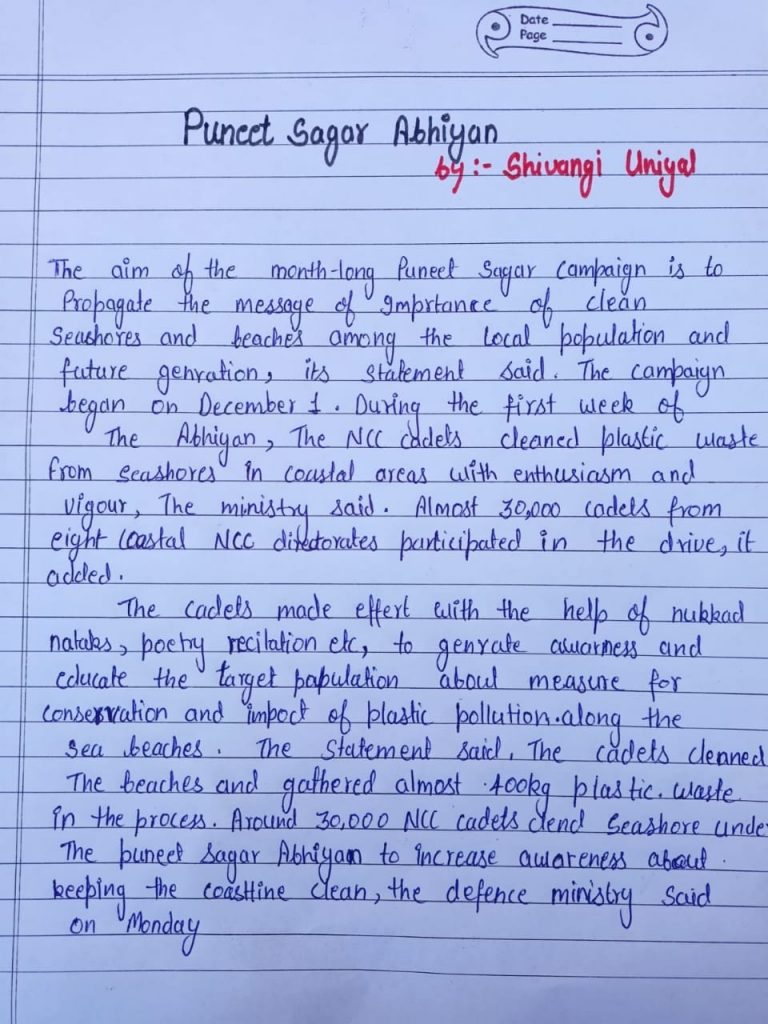 Date
Page
Puneet Sagar Abhiyan
by :- Shivangi Uniyal
The aim of the month-long Puneet Sagar campaign is to
Propagate the message of Imprtance of clean
Seashores and beaches among the local population and
future genration, its statement said. The campaign
began on December 1. During the first week of
The Abhiyan, The NCC cadets cleaned plastic waste
from seashores in coastal areas with enthusiasm and
vigour, The ministry said. Almost 30,000 cadets from
eight coastal NCC directorates participated in the drive, it
added.
The cadets made effert with the help of nukkad
nataks, poetry recitation etc, to genrate awarness and
educate the target papulation about measure for
conservation and impact of plastic pollution.along the
sea beaches. The statement said, The cadets cleaned
The beaches and gathered almost 400kg plastic. waste
in the process. Around 30,000 NCC cadets clend seashore unde
The puneet Sagar Abhiyan to increase awareness about.
keeping the coastline clean, the defence ministry said
on Monday